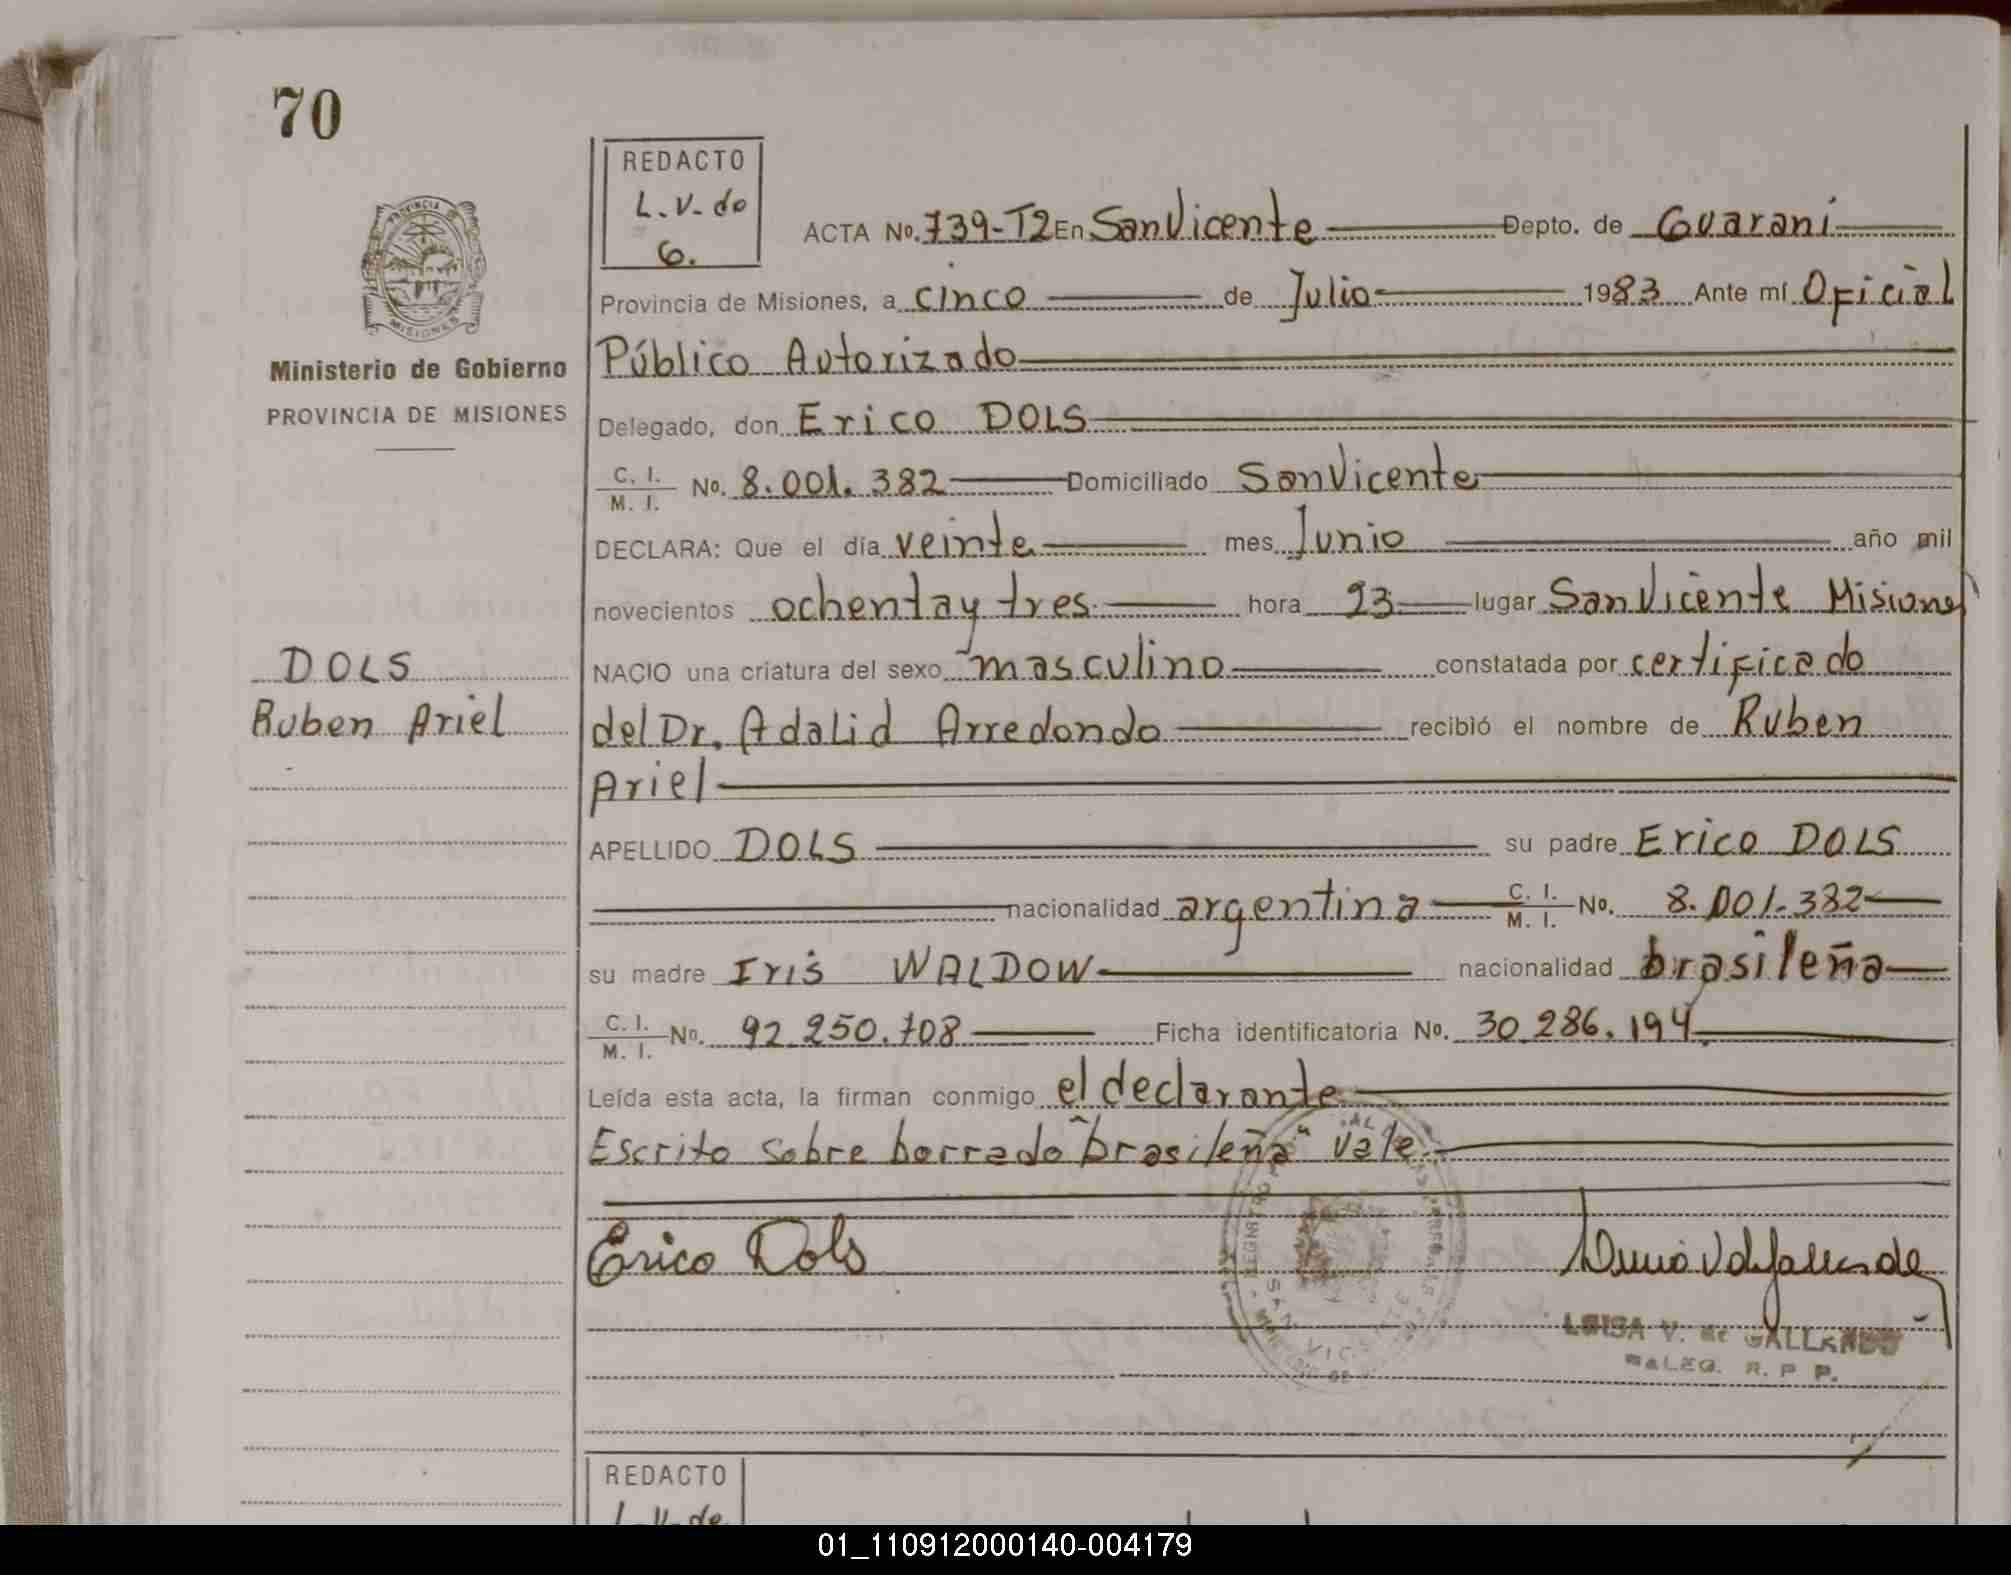 70
REDACTO
L.V. de
G.
ACTA No. 739-T2 En San Vicente Depto. de Guarani
Provincia de Misiones, a cinco de Julio 1983 Ante mí Oficial
Público Autorizado
Delegado, don Erico DOLS
C. I.
M. I. No. 8.001.382 Domiciliado San Vicente
DECLARA: Que el día veinte mes Junio año mil
novecientos ochenta y tres hora 23 lugar San Vicente Misiones
NACIO una criatura del sexo masculino constatada por certificado
del Dr. Adalid Arredondo recibió el nombre de Ruben
Ariel
APELLIDO DOLS su padre Erico DOLS
nacionalidad argentina C. I. M. I. No. 8.001.382
su madre Iris WALDOW nacionalidad brasileña
C. I.
M. I. No. 92.250.708 Ficha identificatoria No. 30.286.194
Leída esta acta, la firman conmigo el declarante
Escrito sobre borrado "brasileña" vale
Erico Dols
LUISA V. de GALLARDO
DELEG. R. P. P.
PROVINCIA
MISIONES
Ministerio de Gobierno
PROVINCIA DE MISIONES
DOLS
Ruben Ariel
SAN VICENTE
REDACTO
L.V. de
01_110912000140-004179